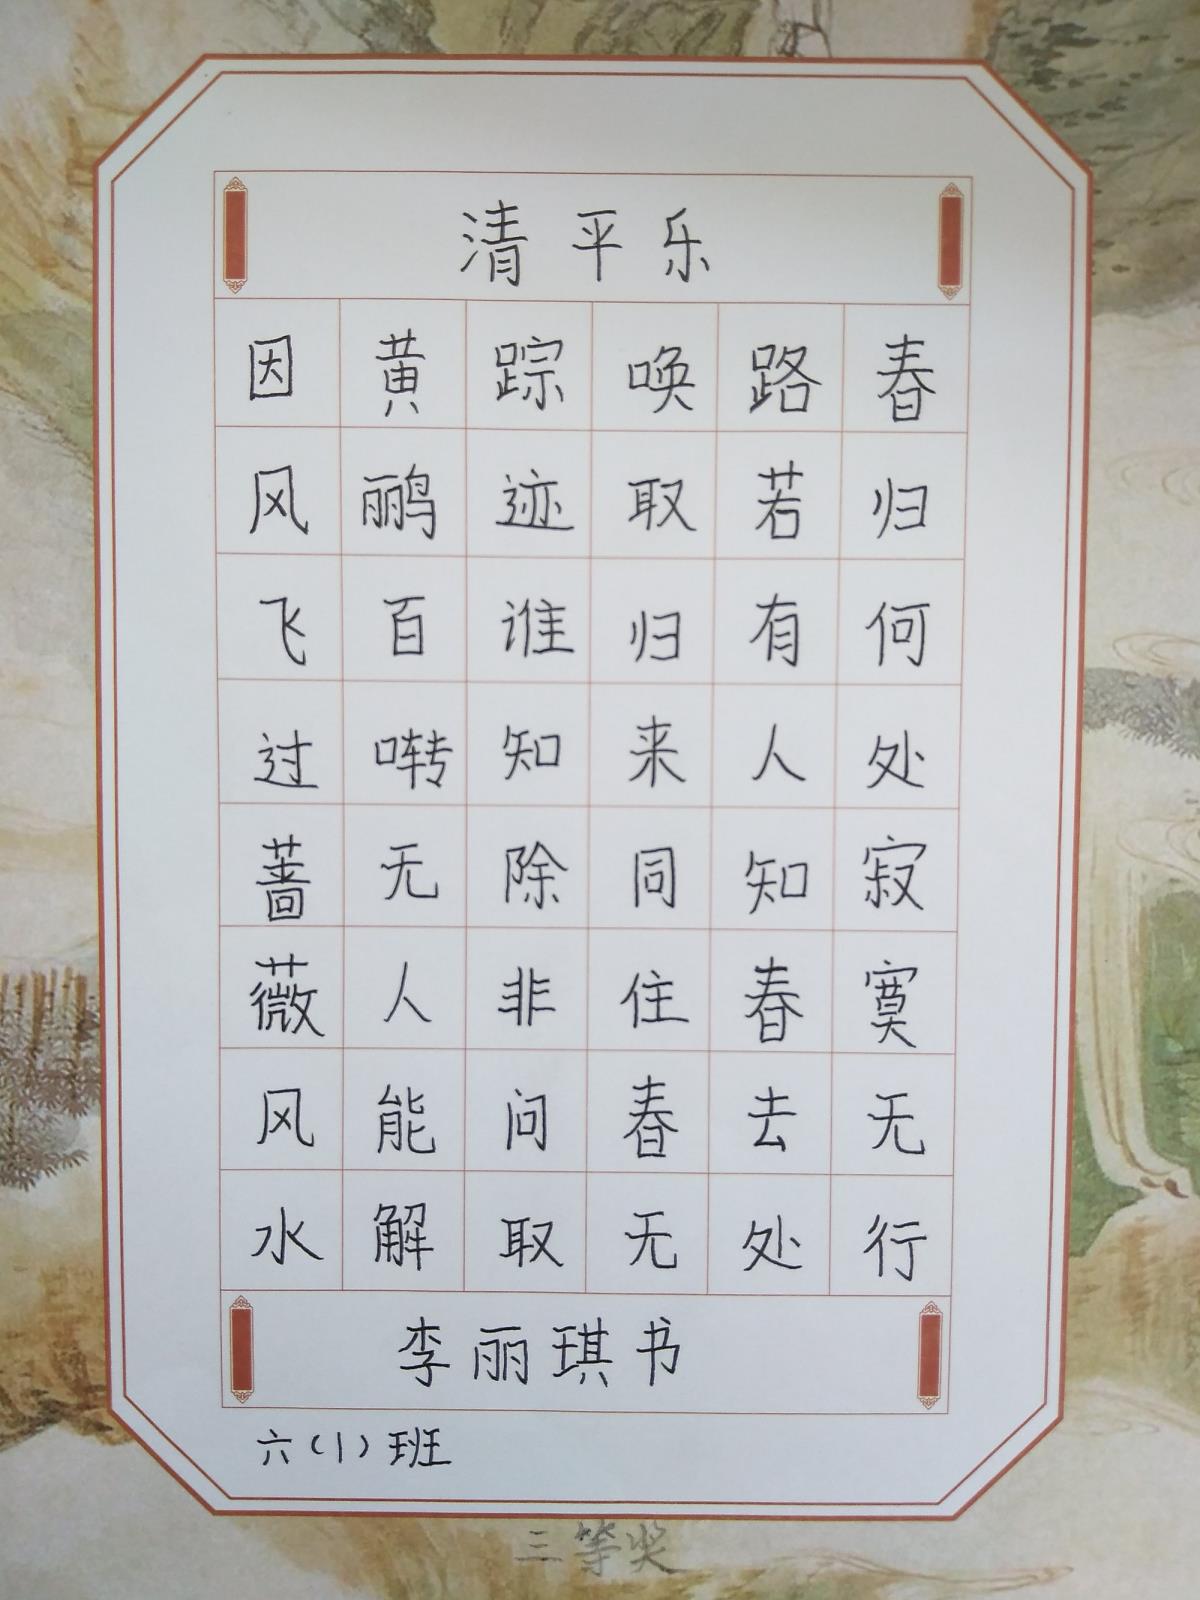 清平乐
春归何处寂寞无行
路若有人知春去处
唤取归来同住春无
踪迹谁知除非问取
黄鹂百啭无人能解
因风飞过蔷薇风水
李丽琪书
六(1)班
三等奖